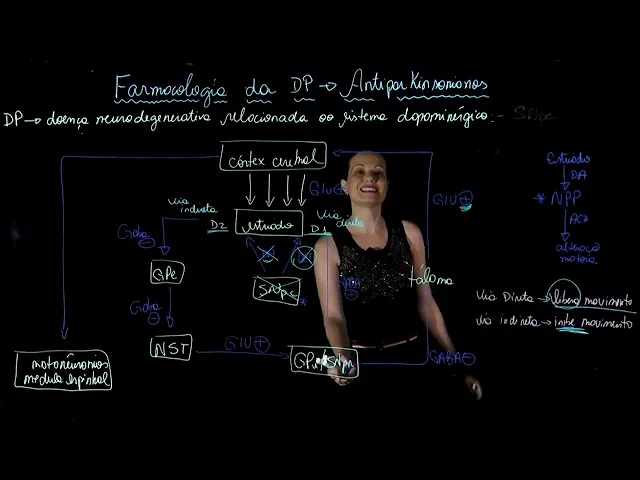 Farmacologia da DP → Antiparkinsonianos
DP → doença neurodegenerativa relacionada ao sistema dopaminérgico. - SNpc
córtex cerebral
Glu +
Glu +
estriado
DA
* NPP
ACh
alteração
motora
via
indireta
D2
estriado
via
direta
D1
Gaba -
GPe
SNpc *
GABA -
tálamo
via Direta → libera movimento
via indireta → inibe movimento
Gaba -
NST
Glu +
GPi SNpr
GABA -
motoneurônios
medula espinhal